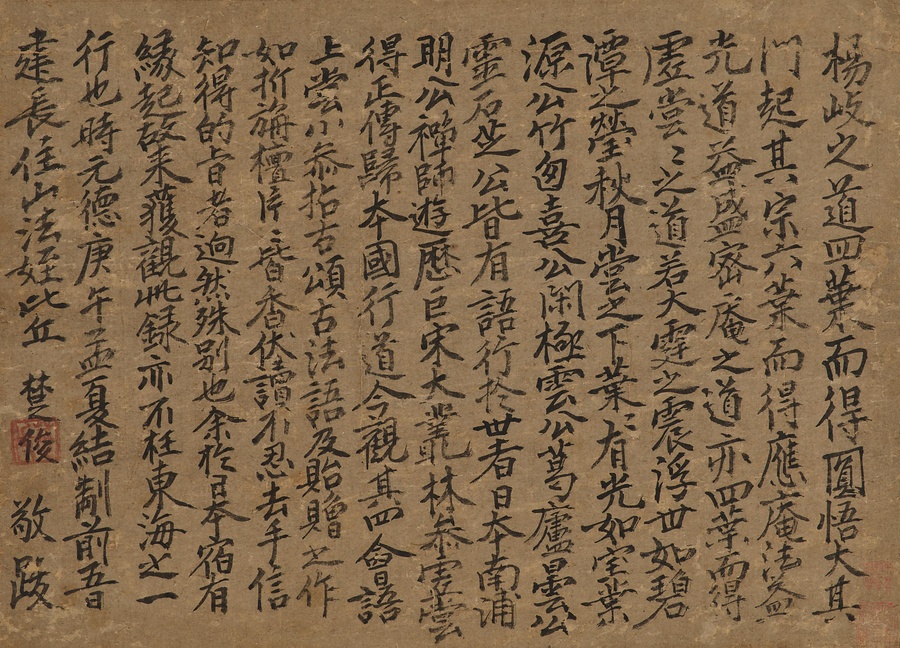 楊岐之道四葉而得圓悟大其
門起其宗六葉而得應庵法益
光道益盛密庵之道亦四葉而得
虛堂〻之道若大霆之震浮世如碧
潭之瑩秋月堂之下葉〻有光如宝葉
源公竹窓喜公閑極雲公葛廬曇公
靈石芝公皆有語行於世者日本南浦
明公禪師遊歷巨宋大叢林參虛堂
得正傳歸本國行道今觀其四會語
上堂小參拈古頌古法語及貽贈之作
如折旃檀片〻皆香伏讀不忍去手信
知得的旨者迥然殊別也余於日本宿有
緣起故来獲觀此錄亦不枉東海之一
行也時元德庚午孟夏結制前五日
建長住山法姪比丘 楚俊 敬跋